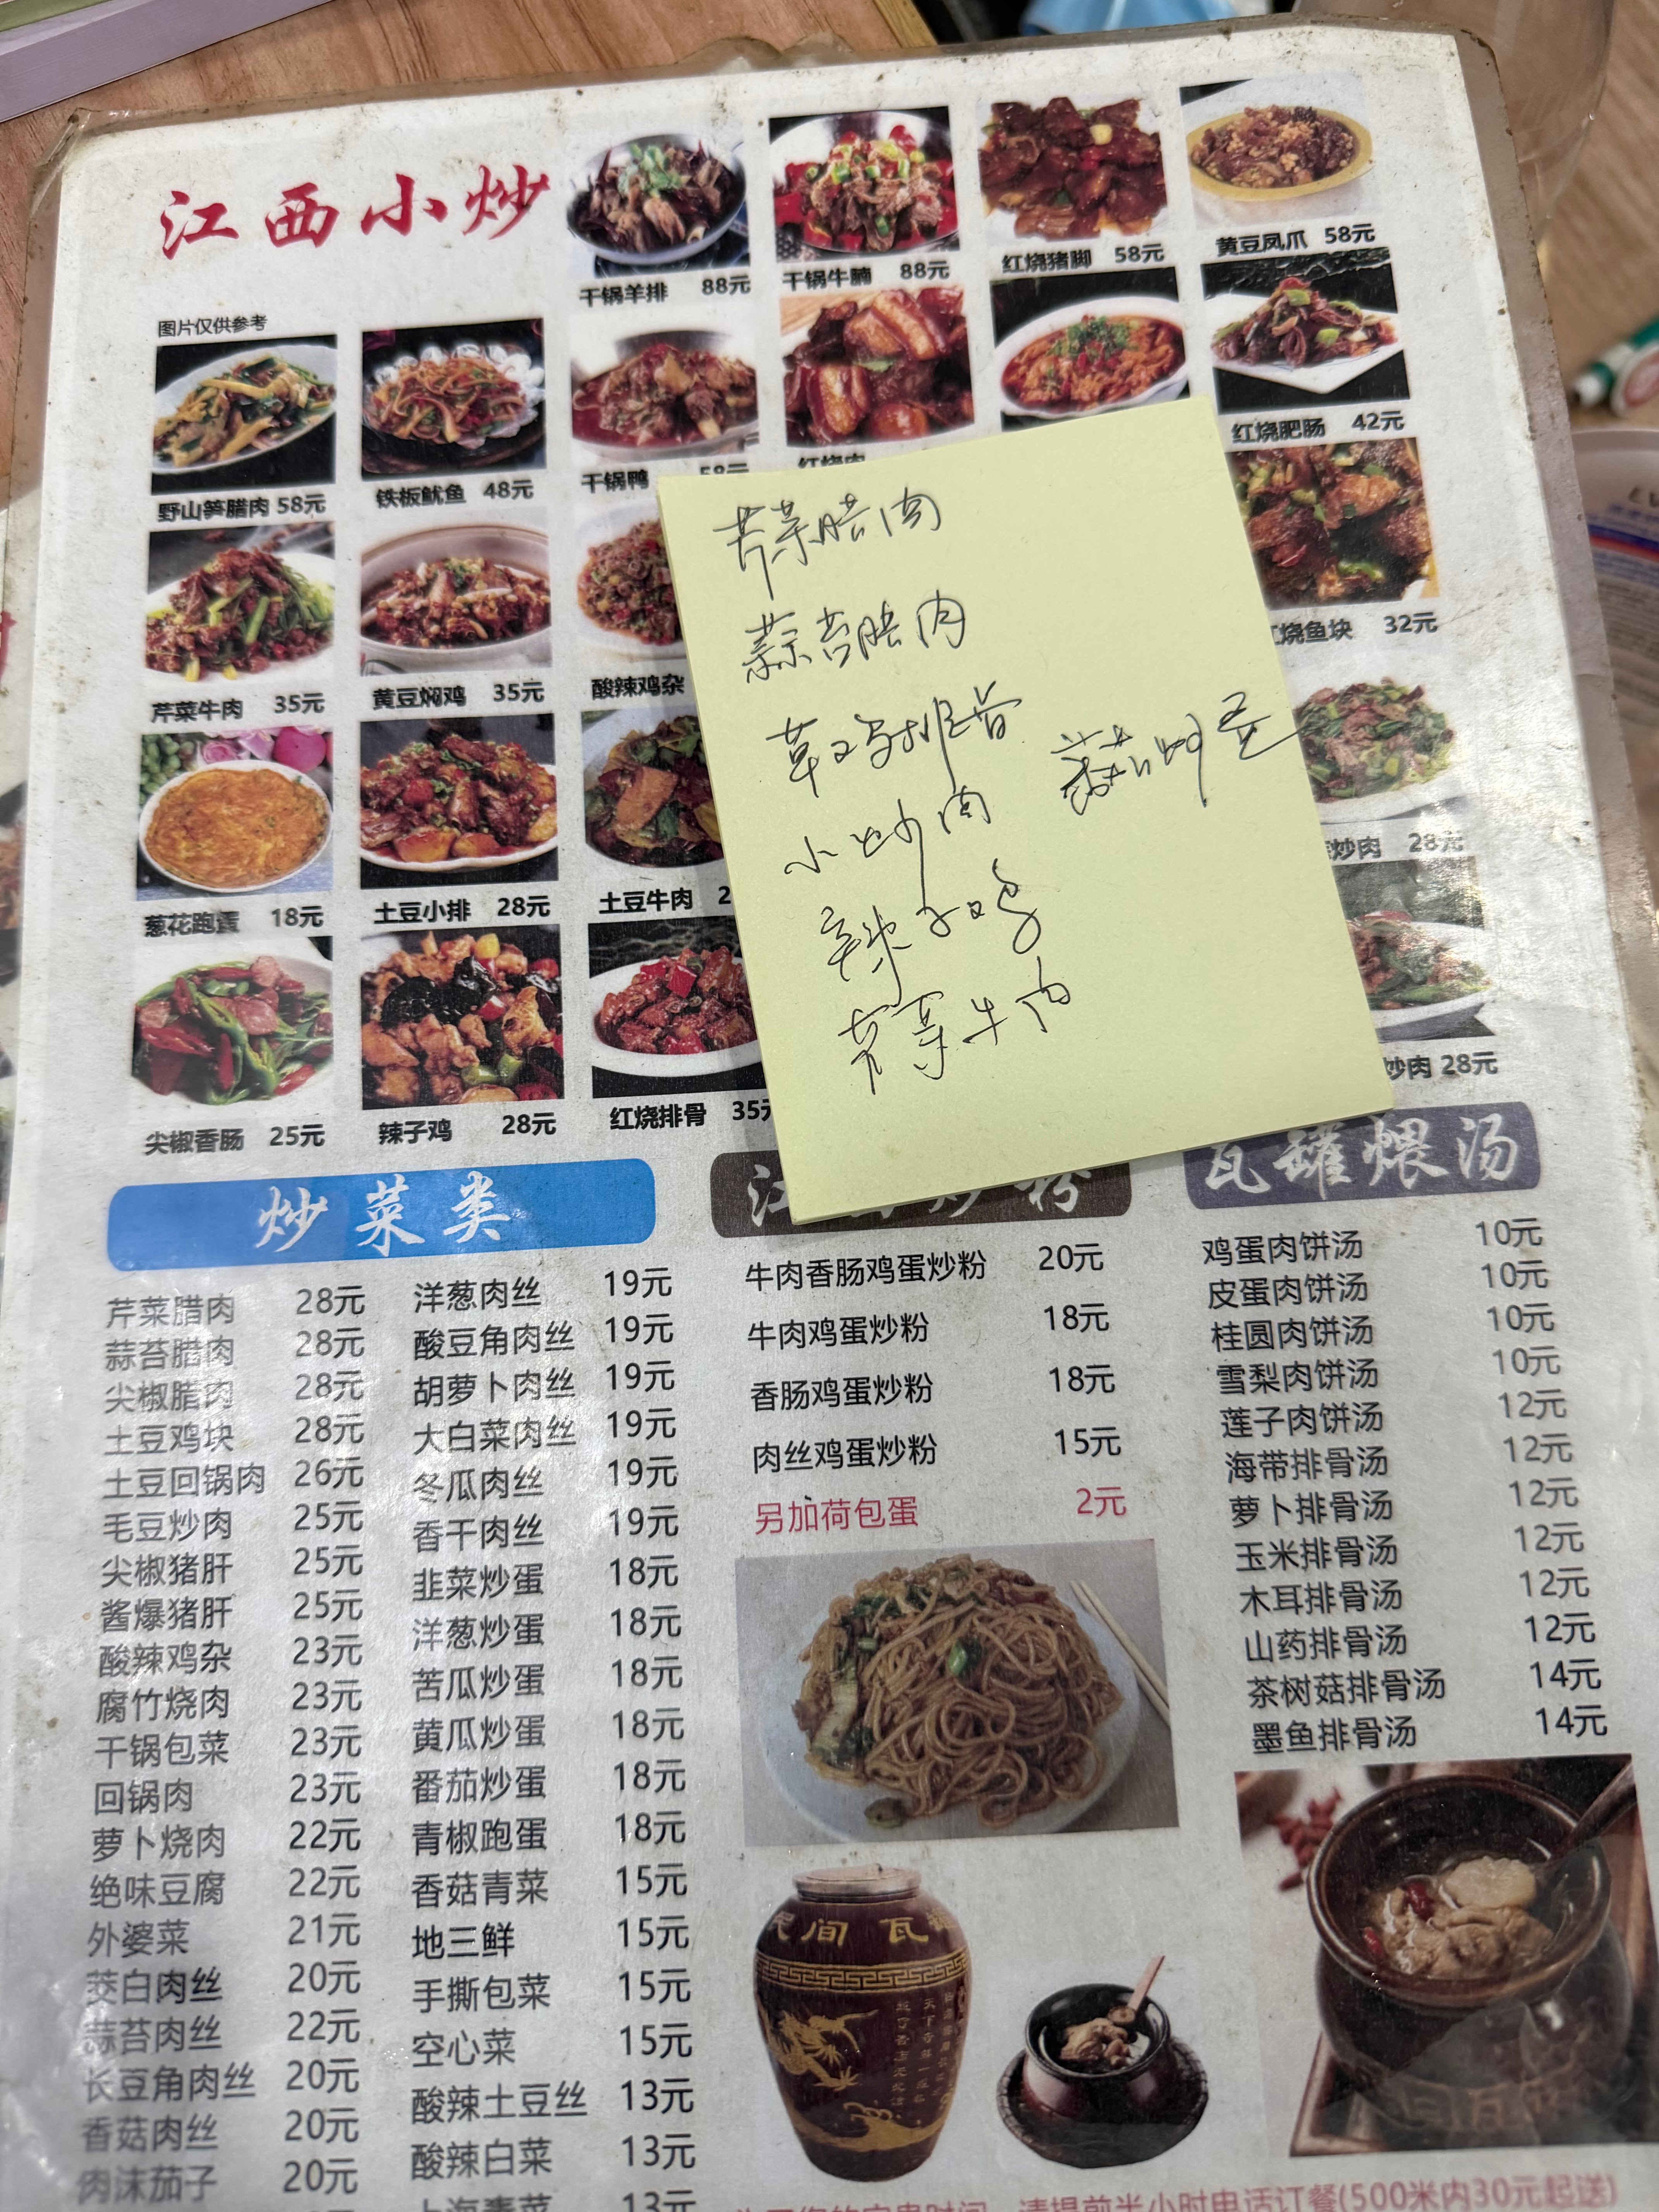 江西小炒
图片仅供参考
干锅羊排 88元
干锅牛腩 88元
红烧猪脚 58元
黄豆凤爪 58元
野山笋腊肉 58元
铁板鱿鱼 48元
干锅鸭 58元
红烧肉
红烧肥肠 42元
芹菜牛肉 35元
黄豆焖鸡 35元
酸辣鸡杂
烧鱼块 32元
葱花跑蛋 18元
土豆小排 28元
土豆牛肉 2
炒肉 28元
尖椒香肠 25元
辣子鸡 28元
红烧排骨 35元
炒肉 28元
芹菜腊肉
蒜苔腊肉
小炒肉
番茄炒蛋
辣子鸡
芹菜牛肉
炒菜类
芹菜腊肉 28元
蒜苔腊肉 28元
尖椒腊肉 28元
土豆鸡块 28元
土豆回锅肉 26元
毛豆炒肉 25元
尖椒猪肝 25元
酱爆猪肝 25元
酸辣鸡杂 23元
腐竹烧肉 23元
干锅包菜 23元
回锅肉 23元
萝卜烧肉 22元
绝味豆腐 22元
外婆菜 21元
茭白肉丝 20元
蒜苔肉丝 22元
长豆角肉丝 20元
香菇肉丝 20元
肉沫茄子 20元
洋葱肉丝 19元
酸豆角肉丝 19元
胡萝卜肉丝 19元
大白菜肉丝 19元
冬瓜肉丝 19元
香干肉丝 19元
韭菜炒蛋 18元
洋葱炒蛋 18元
苦瓜炒蛋 18元
黄瓜炒蛋 18元
番茄炒蛋 18元
青椒跑蛋 18元
香菇青菜 15元
地三鲜 15元
手撕包菜 15元
空心菜 15元
酸辣土豆丝 13元
酸辣白菜 13元
上海青菜 13元
牛肉香肠鸡蛋炒粉 20元
牛肉鸡蛋炒粉 18元
香肠鸡蛋炒粉 18元
肉丝鸡蛋炒粉 15元
另加荷包蛋 2元
瓦罐煨汤
鸡蛋肉饼汤 10元
皮蛋肉饼汤 10元
桂圆肉饼汤 10元
雪梨肉饼汤 10元
莲子肉饼汤 12元
海带排骨汤 12元
萝卜排骨汤 12元
玉米排骨汤 12元
木耳排骨汤 12元
山药排骨汤 12元
茶树菇排骨汤 14元
墨鱼排骨汤 14元
民间瓦
请提前半小时电话订餐(500米内30元起送)